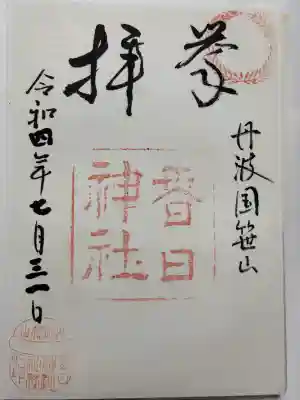 奉拝
丹波国笹山
春日
神社
令和四年七月三一日